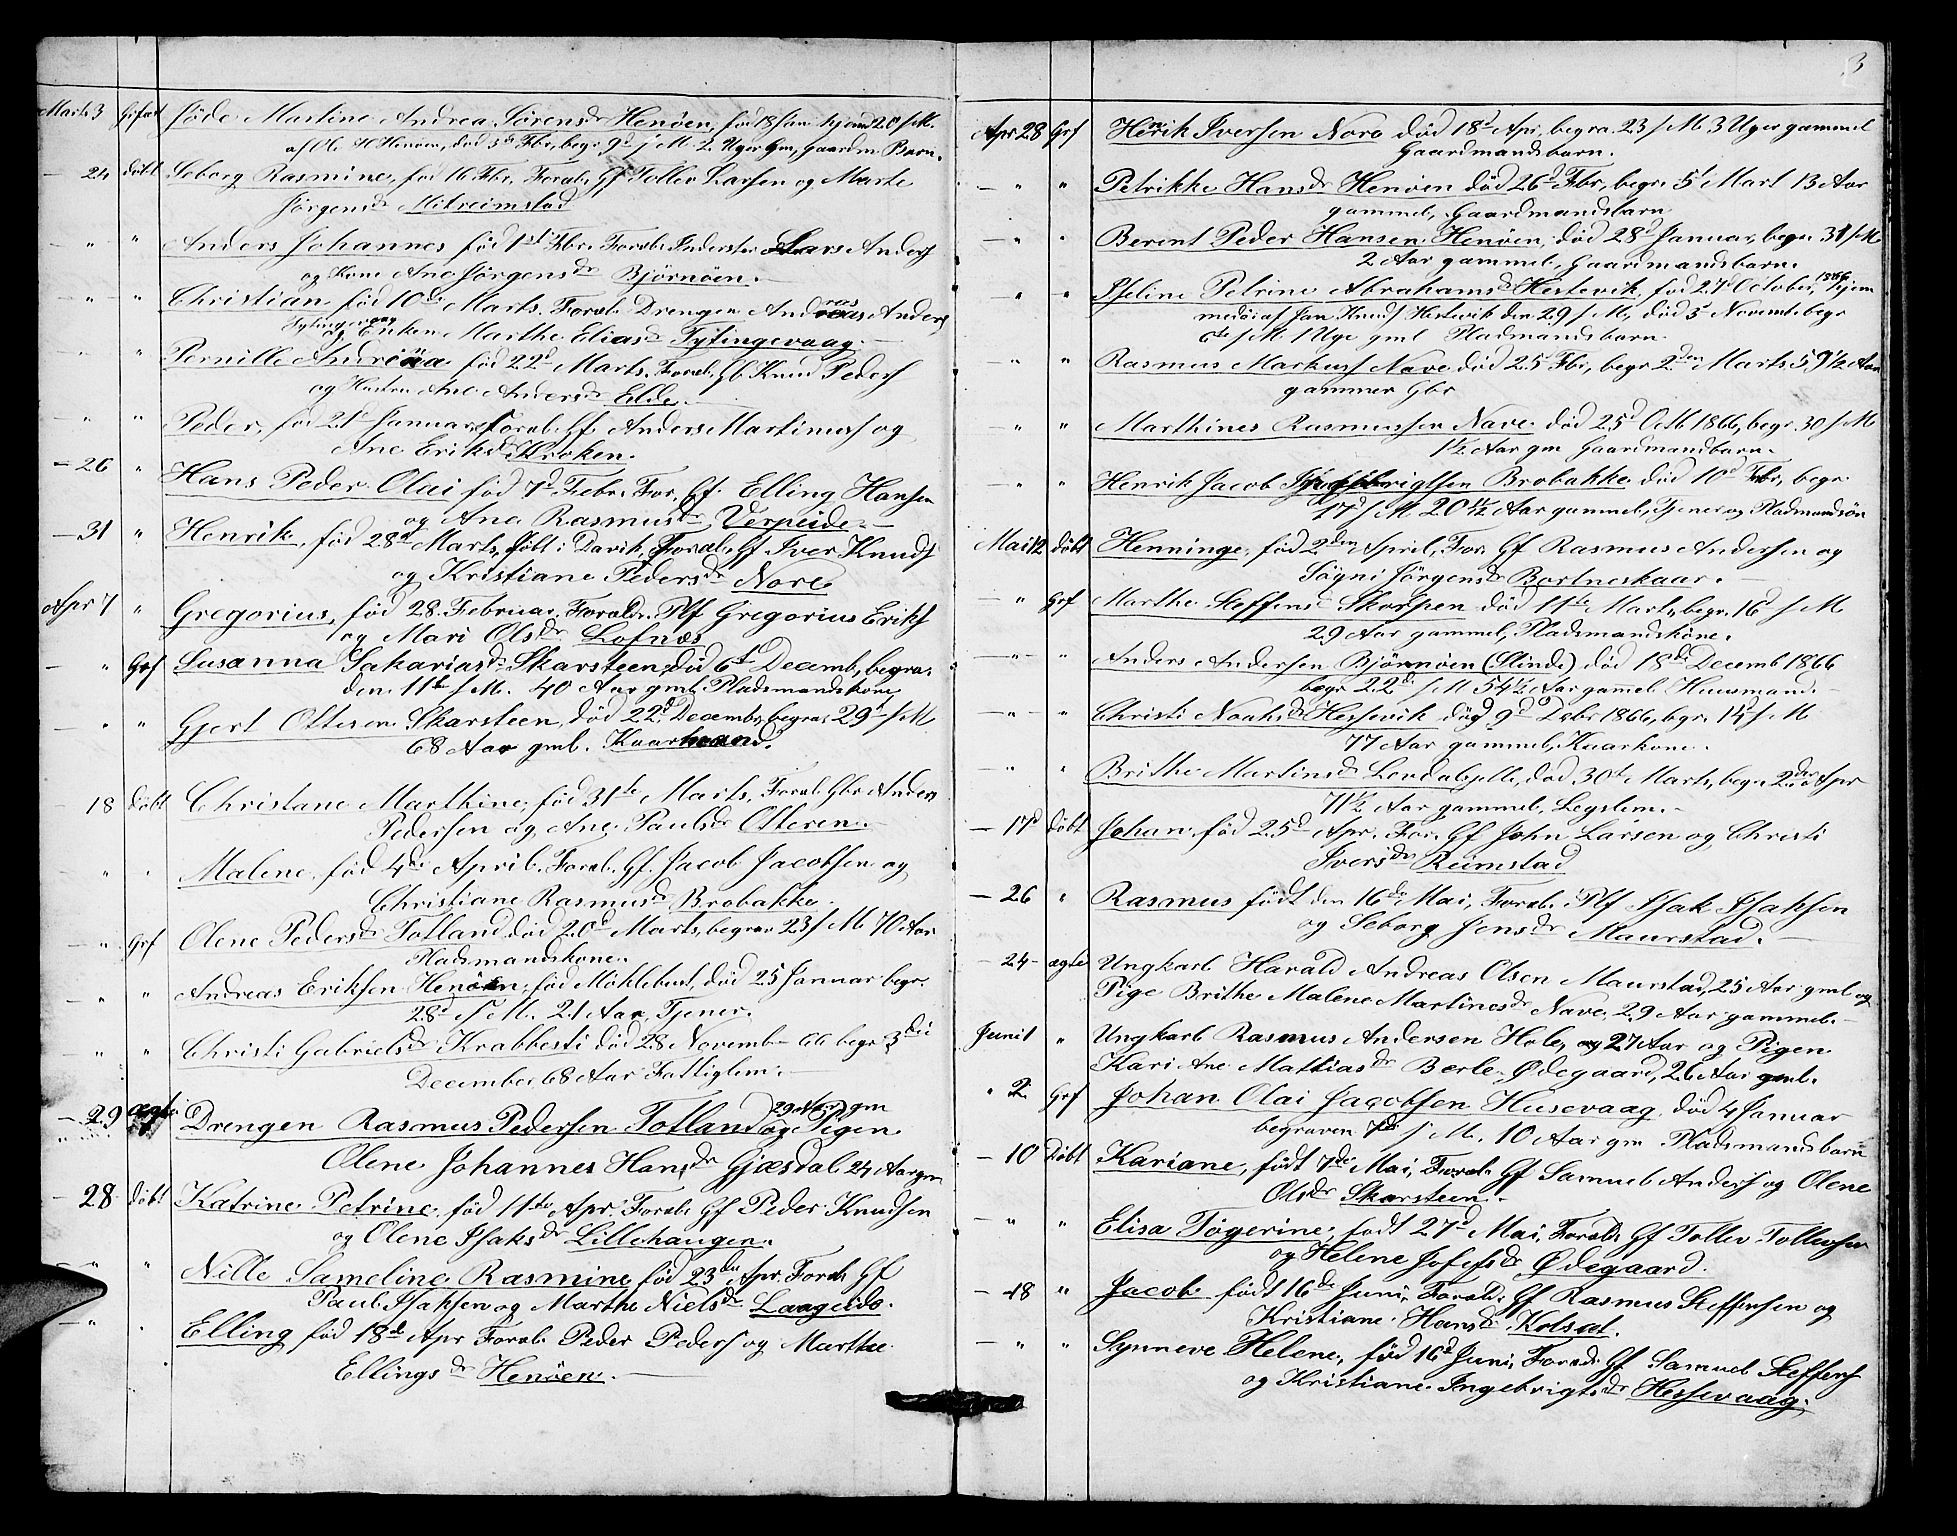 Marts 3 Grfæst føde Martine Andrea Sørensdr Henøen, fød 18 Jan. hjemd 20 / M.
af Ole H Henøen, død 3d Fbr, begr. 9d / M. 2 Uger Gm, Gaardm. Barn.
— 24 døbt Seborg Rasmine, fød 16 Fbr. Foræl. Gf Tollev Larsen og Marte
Jørgensdr Mitreimstad
" " Anders Johannes fød 1ste Fbr. Foræl. Inderster Lars Anders
og Kone Ane Jørgensdr Bjørnøen.
" " Christian fød 10de Marts. Foræl. Drengen Andreas Anders
Tytingevaag og Enken Marthe Eliasdr Tytingevaag.
" " Pernille Andrea fød 22d Marts. Foræl. Gb Knud Peders
og Hustru Ane Andersdr Elde.
" " Peder, fød 21d Januar, Foræl. Gf. Anders Martinus og
Ane Eriksdr Kroken.
— 26 " Hans Peder Olai fød 7d Febr. For. Gf. Elling Hansen
og Ane Rasmusdr Verpeide.
— 31 " Henrik, fød 28d Marts, født i Davik, Foræl. Gf Iver Knuds
og Kristiane Pedersdr Nore
Apr 7 " Gregorius, fød 28. Februar, Foræld. Plf Gregorius Eriks
og Mari Olsdr Lofnæs
— " Grf Susanna Sakariasdr Skarsteen, død 6d Decemb, begra.
den 11te / M. 40 Aar gml. Pladsmandskone,
" " Gjert Ottesen Skarsteen, død 22d Decemb, begrav 29d / M
68 Aar gml. Kaarmand.
18 døbt Christane Marthine, fød 31te Marts, Foræl. Gbr Anders
Pedersen og Ane Paulsdr Otteren.
" " Malene, fød 4de April. Foræl. Gf. Jacob Jacobsen og
Christiane Rasmusdr Brobakke.
— " Grf Olene Pedersdr Totland død 20d Marts, begrav 23 / M 70 Aar
Pladsmandskone.
— " " Andreas Eriksen Henøen, fød Møklebust, død 25 Januar begr.
28d / M. 21 Aar, Tjener.
" " Christi Gabrielsdr Krabbesti død 28 Novemb— 66 begr 3die
December 68 Aar Fattiglem.
— 29 ægte Drengen Rasmus Pedersen Totland 29 Aar gm og Pigen
Olene Johannes Hansdr Gjæsdal 24 Aar gm
— 28 døbt Katrine Petrine, fød 11te Apr. Foræl. Gf Peder Knudsen
og Olene Isaksdr Lillehaugen.
— " " Nille Sameline Rasmine, fød 23de Apr. Foræl. Gf
Paul Isaksen og Marthe Nielsdr Langeide.
— " " Elling fød 18d Apr Foræl. Peder Peders og Marthe
Ellingsdr Henøen.
3
Apr 28 Grf Henrik Iversen Nore død 18d Apr, begra. 23 / M 3 Uger gammel
Gaardmandsbarn.
— " " Petrikke Hansdr Henøen død 26d Fbr, begr. 5' Mart 13 Aar
gammel, Gaardmandsbarn
— " " Berent Peder Hansen Henøen, død 28d Januar, begr. 31 / M
2 Aar gammel. Gaardmandsbarn.
— " " Iseline Petrine Abrahamsdr Hestevik, fød 27d October, 1866 hjem
medøi af Jan Knuds Hestevik den 29 / M, død 5d Novembr begr
/ M. 1 Uge gml Pladmandsbarn.
— " " Rasmus Markus Nave død 25d Fbr, begr 2den Marts 59½ Aar
gammer Gbr
" " Marthines Rasmussen Nave død 25d Octb 1866, begr. 30 / M
1½ Aar gm Gaardmandbarn.
— " " Henrik Jacob Ingebrigtsen Brobakke død 10d Fbr, begr.
17d / M 20½ Aar gammel, Tjener og Pladmandsøn
Mai 12 døbt Henninge, fød 2den April, For. Gf Rasmus Andersen og
Søgni Jørgensdr Bortneskaar.
— " Grf Marthe Steffensdr Skorpen død 11te Mart, begr. 16d / M
29 Aar gammel, Pladsmandskone.
— " " Anders Andersen Bjørnøen (Slinde) død 18de Decemb 1866
begr. 22d / M 54½ Aar gamel. Huusmand.
— " " Christi Noahsdr Hessevik død 9d Debr 1866, bgr. 14d / M
77 Aar gammel, Kaarkone.
— " " Brithe Martinsdr Levdalzelle, død 30te Mart, begr. 2den Apr
71½ Aar gammel, Legslem.
— 17d døbt Johan, fød 25d Apr. For. Gf John Larsen og Christi
Iversdr Reimstad
— 26 " Rasmus født den 16de Mai, Foræl. Plf Isak Isaksen
og Seborg Jensdr Maurstad.
— 24 — ægte Ungkarl Harald Andreas Olsen Maurstad, 25 Aar gml og
Pige Brithe Malene Martinesdr Nave. 29 Aar gammel.
Juni 1 " Ungkarl Rasmus Andersen Hole, 27 Aar og Pigen
Kari Ane Mattiasdr Berle, Ødegaard, 26 Aar gml.
" 2 Grf Johan Olai Jacobsen Husevaag, død 4 Januar
begraven 7de / M. 10 Aar gm Pladsmandsbarn
— 10 Døbt Kariane, født 7de Mai, Foræl. Gf Samuel Anders og Olene
Olsdr Skarsteen.
— " " Elisa Tøgerine, født 27d Mai, Foræld. Gf Tollev Tollevsen
og Helene Josefsdr Ødegaard.
— 18 " Jacob født 16de Juni, Foræld. Gf Rasmus Steffensen og
Kristiane Hansdr Kolsæt.
— " " Synneve Helene, fød 16d Juni, Foræld. Gf Samuel Steffens
og Kristiane Ingebrigtsdr Hessevaag.